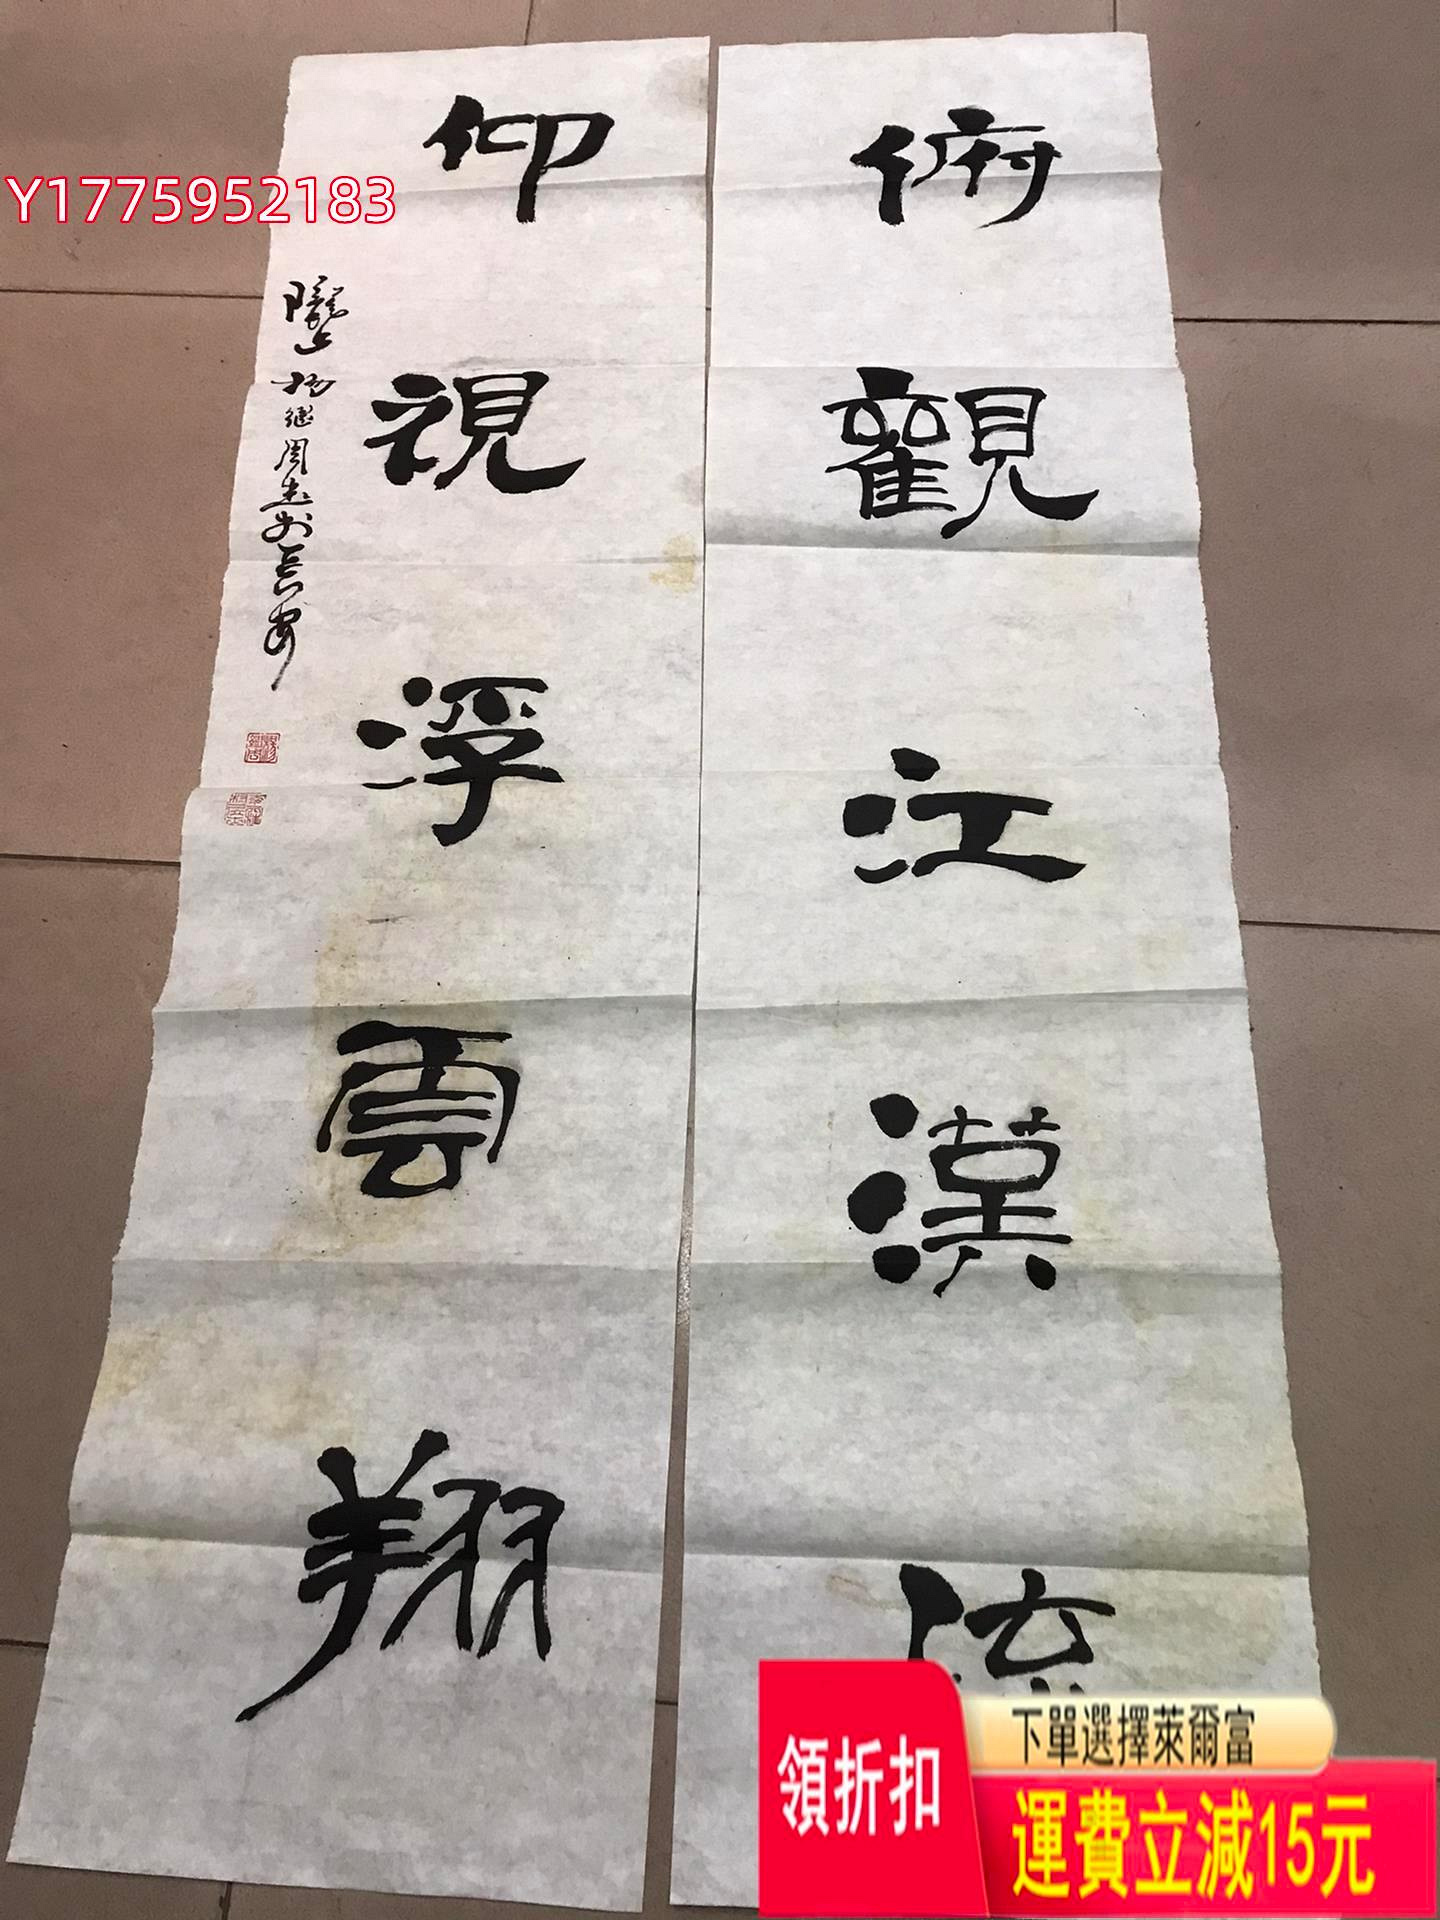 Y1775952183
俯觀江漢流
仰視浮雲翔
隴上楊继周書於長安
領折扣
下單選擇萊爾富
運費立減15元